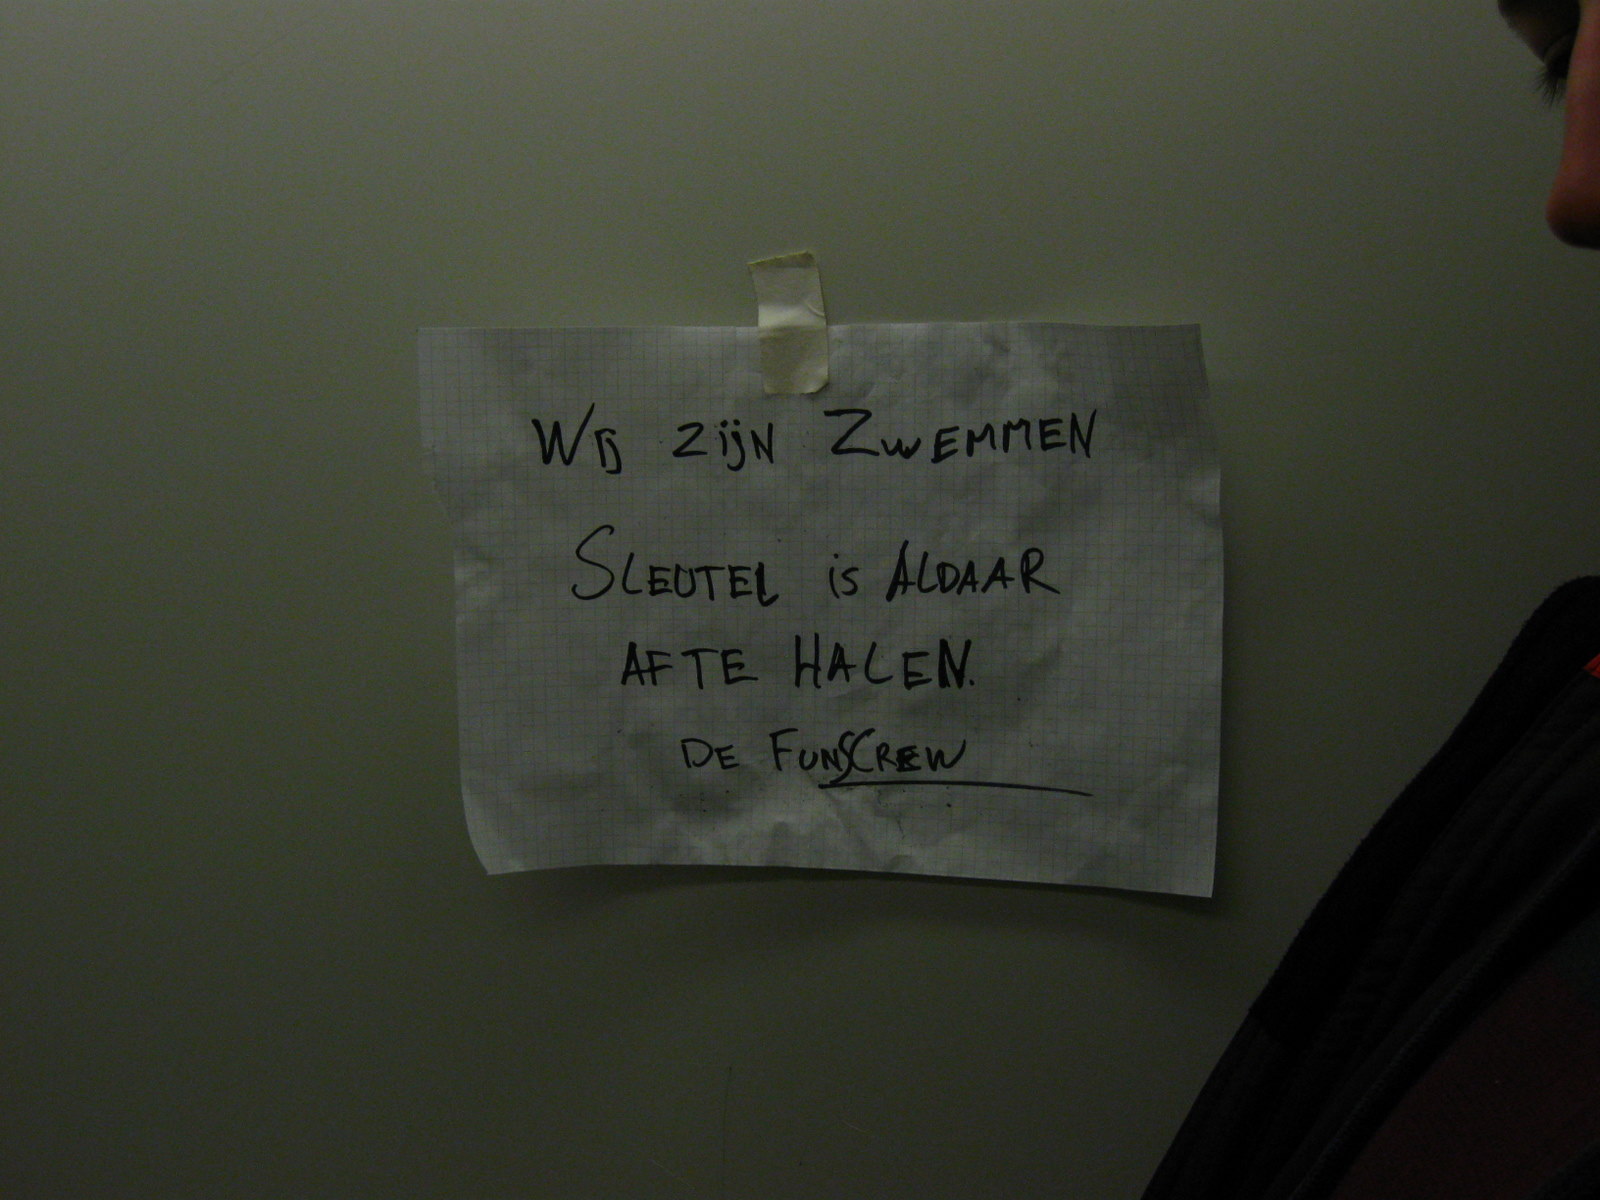 Wij zijn Zwemmen
Sleutel is Aldaar
afte Halen.
De FunSCrew